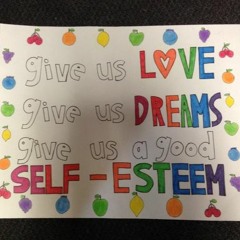 give us LOVE
give us DREAMS
give us a good
SELF-ESTEEM